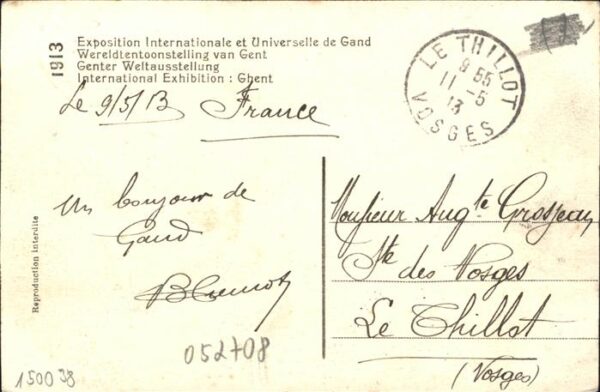 1913
Exposition Internationale et Universelle de Gand
Wereldtentoonstelling van Gent
Genter Weltausstellung
International Exhibition : Ghent
Le 9/5/13 France
LE THILLOT
9 55
11 - 5
13
VOSGES
Un bonjour de
Gand
Reproduction interdite
Monsieur Augte Grosjean
Ste des Vosges
Le Thillot
(Vosges)
052708
150038